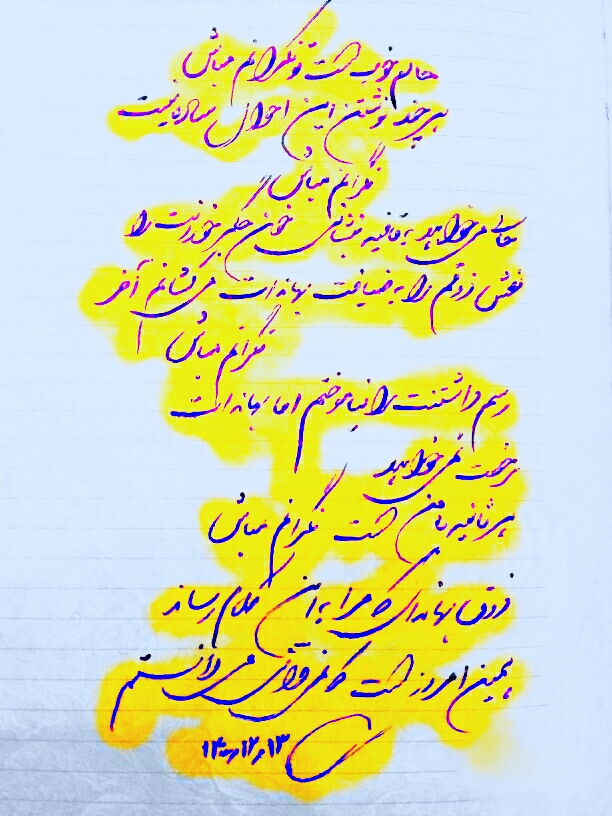 حالم خوب است تو نگرانم مباش
هر چند نوشتن این احوال ساده نیست
نگرانم مباش
می‌خواهد به قافیه خون جگر خوردنت را
نعش ذوقم را به ضیافت بهانه‌ات می‌کشانم آخر
نگرانم مباش
رسم داشتنت را نیاموختم اما بهانه‌ات
رخصت نمی‌خواهد
هر ثانیه با من است نگرانم مباش
ذوق بهانه‌ات مرا به این کلام رساند
همین امروز است که نمی‌دانستم
۱۴۰۰٫۱۲٫۱۳